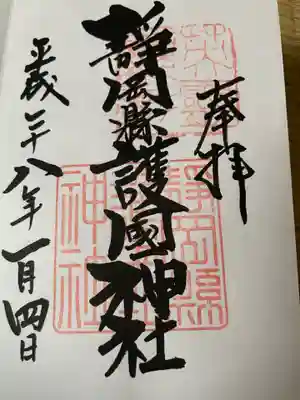 奉拝
靜岡縣護國神社
平成二十八年一月四日